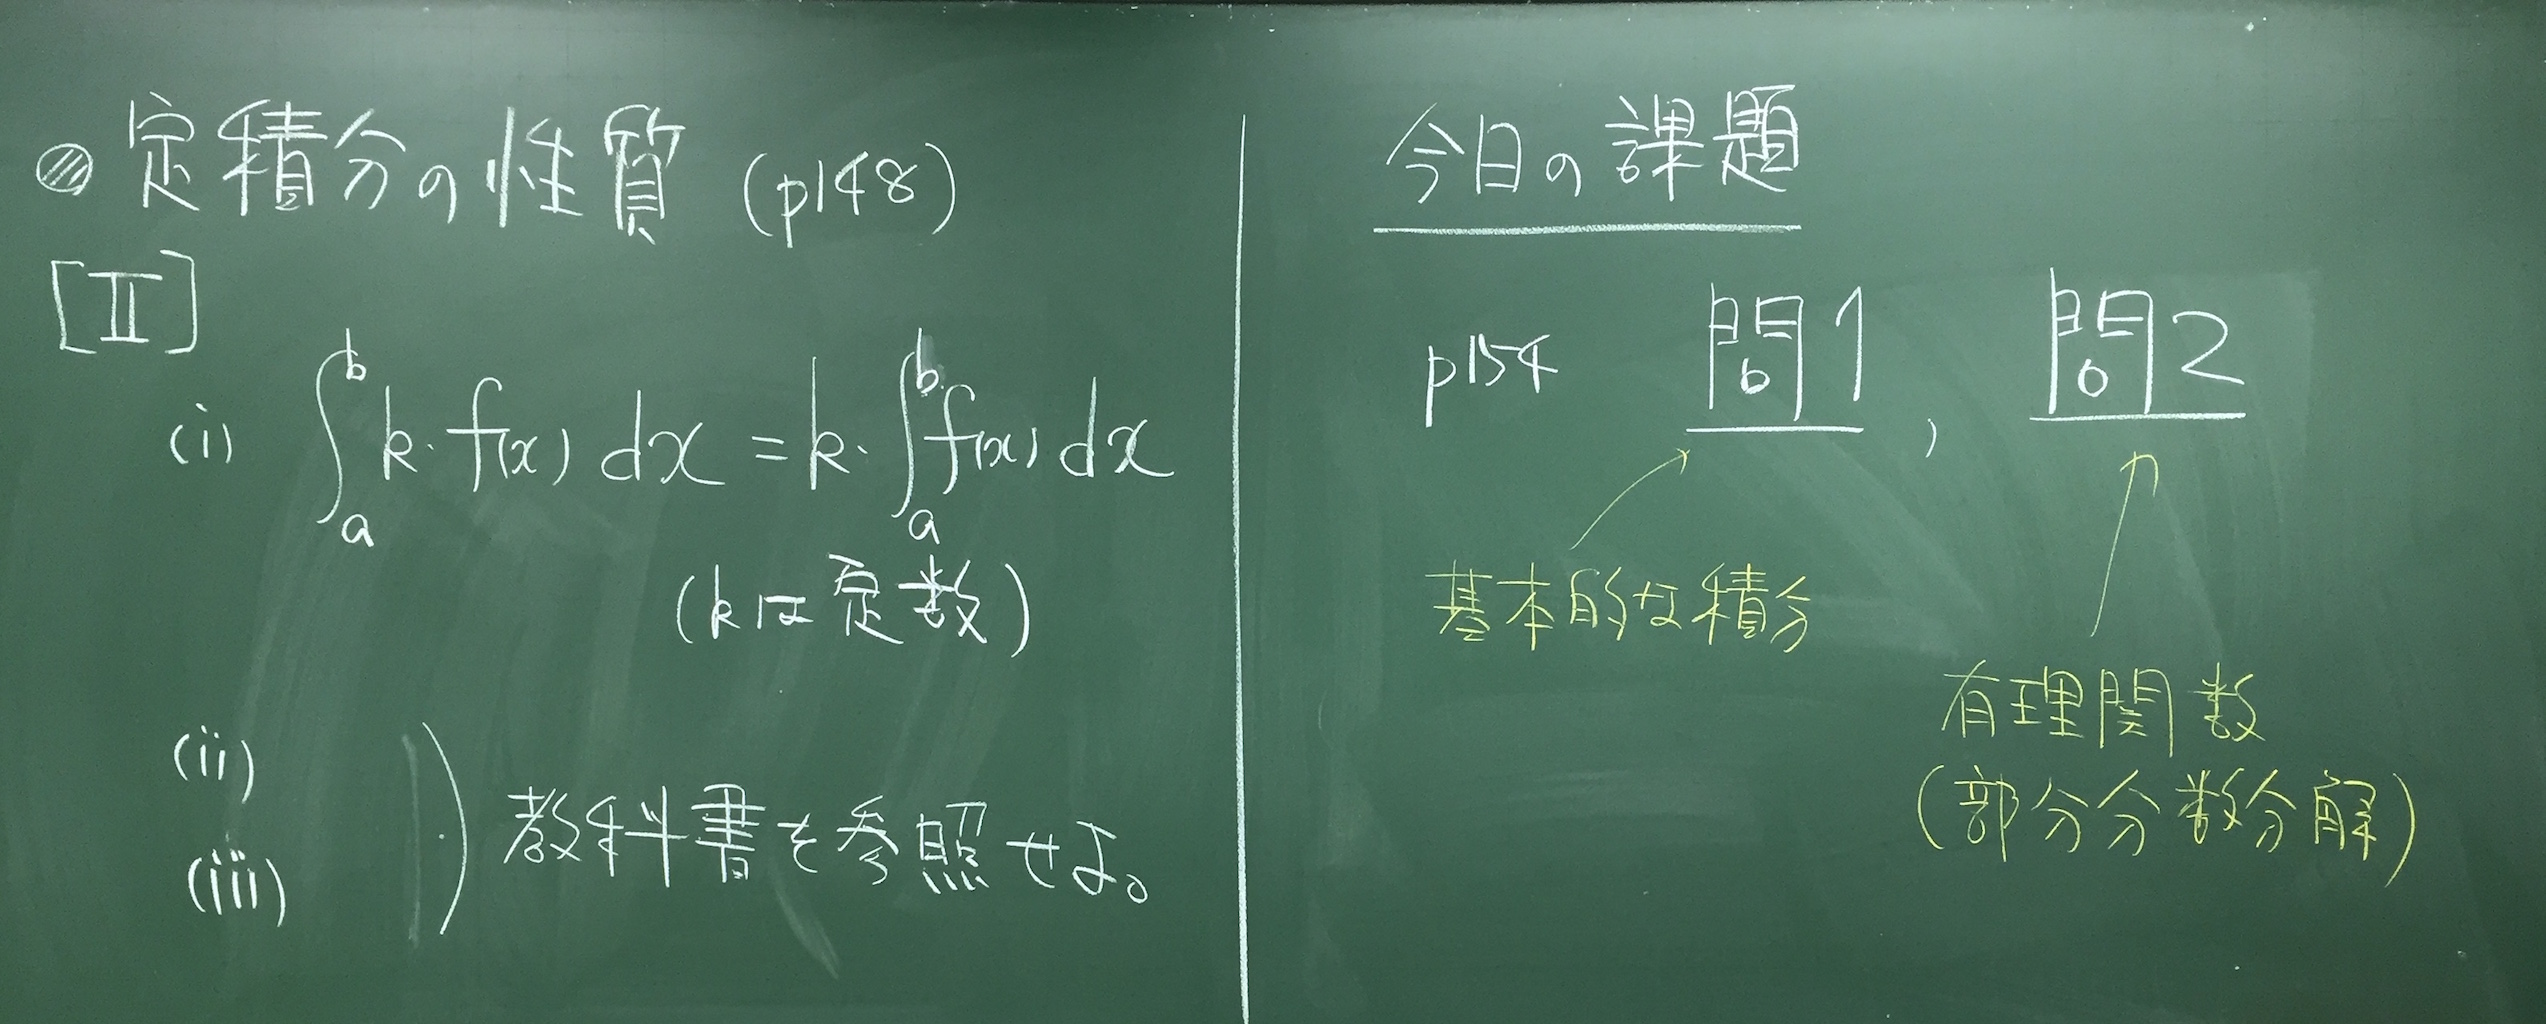 定積分の性質 (p148)
[II]
(i) ∫_a^b k・f(x) dx = k・∫_a^b f(x) dx
(kは定数)
(ii)
(iii)
) 教科書を参照せよ。
今日の課題
p154 問1, 問2
基本的な積分
有理関数
(部分分数分解)